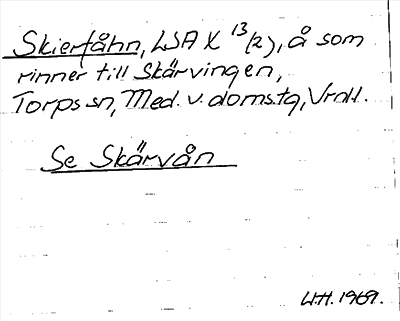 Skierfåhn, LSA X 13/2), å som
rinner till Skärvingen,
Torps sn, Med. v. doms.tg,
Se Skärvån
W.H. 1969.